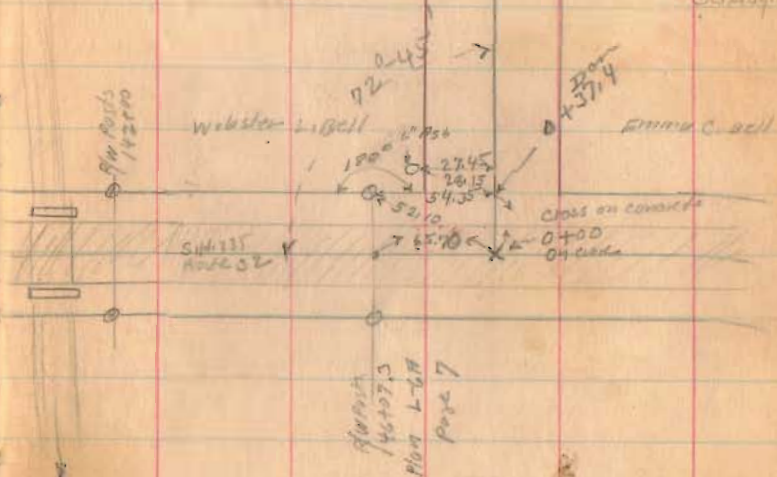 72°-45'
Iron
+37.4
R/W Posts
142+00
Webster L. Bell
Emma C. Bell
180°
6" Ash
27.45
28.15
54.35
52.10
65.70
Cross on concrete
0+00
On curve
Route 32
R/W Post
Plan L-2
Page 7